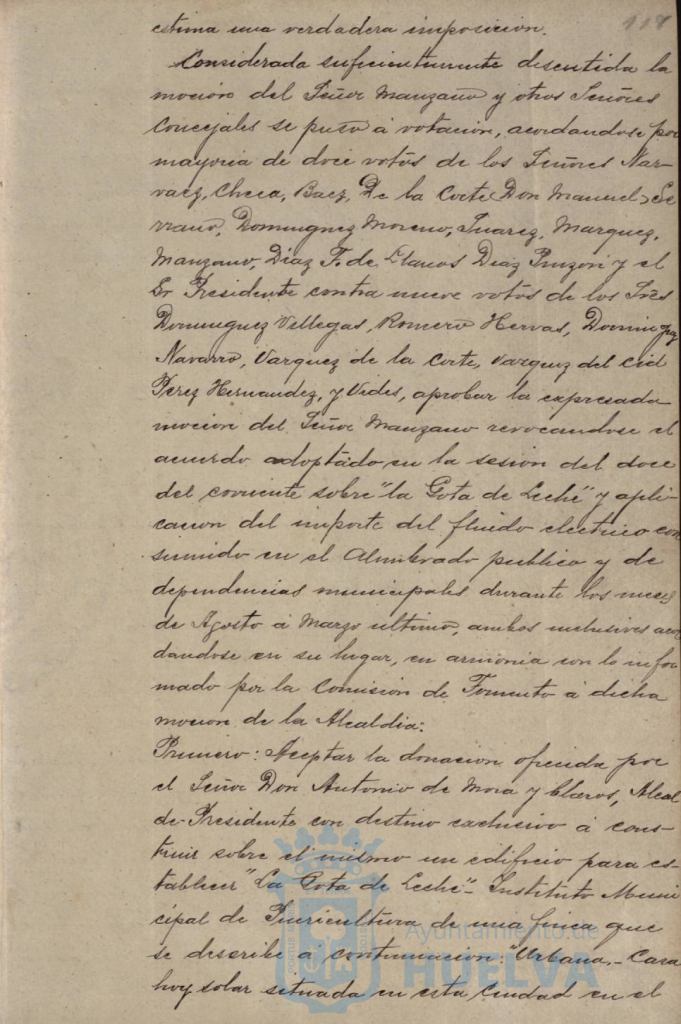 117
estima una verdadera imposicion.
Considerada suficientemente discutida la
moción del Señor Manzano y otros Señores
Concejales se puso á votación, acordandose por
mayoria de doce votos de los Señores Nar-
vaez, Checa, Baez, De la Corte (Don Manuel) Se
rrano, Dominguez Moreno, Suarez, Marquez,
Manzano, Diaz F. de Llanos Diaz Pinzón y el
Sr Presidente contra nueve votos de los Sres
Dominguez Villegas, Romero Hervas, Doming
Navarro, Vazquez de la Corte, Vazquez del Cid
Perez Hernandez, y Vides, aprobar la expresada
mocion del Señor Manzano revocandose el
acuerdo adoptado en la sesion del doce
del corriente sobre "la Gota de Leche" y apli-
cacion del importe del fluido electrico con
sumido en el Alumbrado publico y de
dependencias municipales durante los meses
de Agosto á Marzo ultimo, ambos inclusives acor
dandose en su lugar, en armonia con lo infor
mado por la Comisión de Fomento á dicha
mocion de la Alcaldia:
Primero: Aceptar la donacion ofrecida por
el Señor Don Antonio de Mora y Claros, Alcal
de-Presidente con destino exclusivo á cons-
truir sobre el mismo un edificio para es-
tablecer "La Gota de Leche"- Instituto Muni
cipal de Puericultura de una finca que
se describe á continuacion: "Urbana.- Casa
hoy solar situada en esta Ciudad en el
Ayuntamiento de
HUELVA